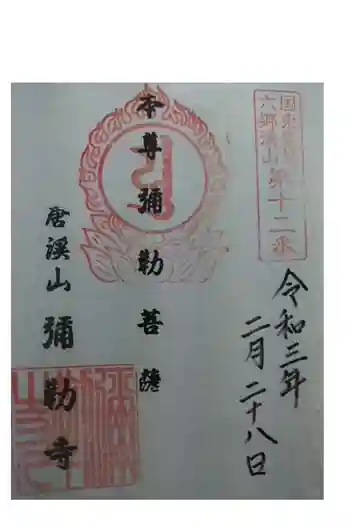 国東
六郷満山第十二番
令和三年
二月二十八日
本尊彌勒菩薩
唐溪山彌勒寺